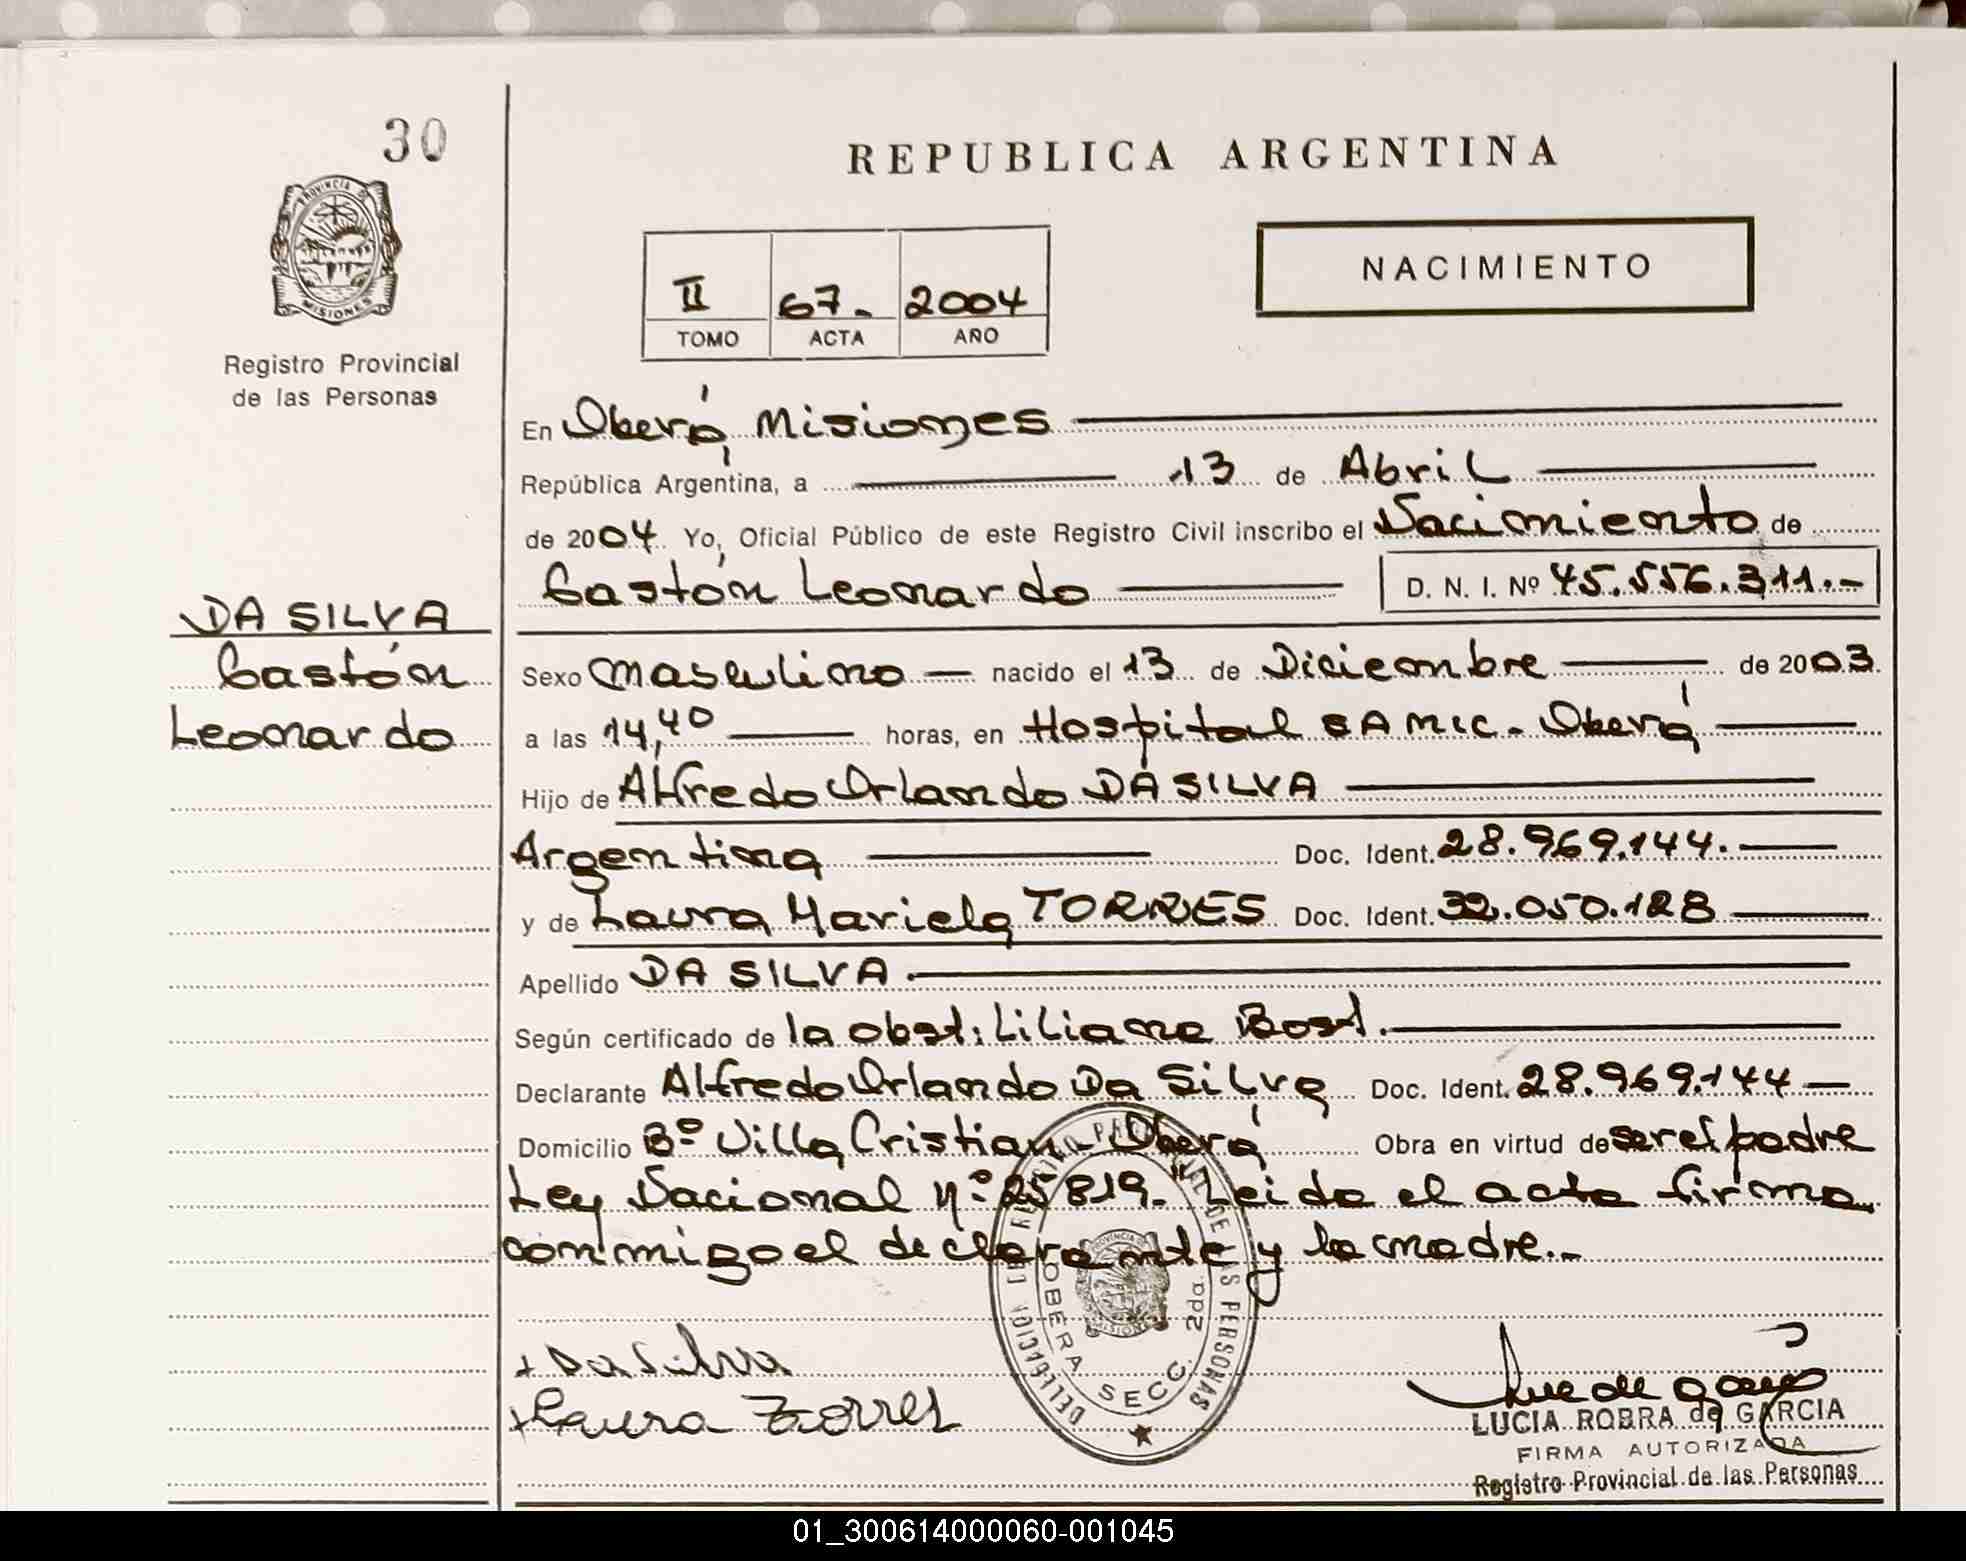 30
REPUBLICA ARGENTINA
PROVINCIA DE
MISIONES
Registro Provincial
de las Personas
NACIMIENTO
II 67.- 2004
TOMO ACTA AÑO
En Oberá, Misiones
República Argentina, a 13 de Abril
de 2004. Yo, Oficial Público de este Registro Civil inscribo el Nacimiento de
Gastón Leonardo D. N. I. Nº 45.556.311.-
DA SILVA
Gastón
Leonardo
Sexo Masculino nacido el 13 de Diciembre de 2003.
a las 14,40 horas, en Hospital SAMIC. Oberá
Hijo de Alfredo Orlando DA SILVA
Argentina Doc. Ident. 28.969.144.
y de Laura Mariela TORRES Doc. Ident. 32.050.128
Apellido DA SILVA.
Según certificado de la obst: Liliana Bost.
Declarante Alfredo Orlando Da Silva Doc. Ident. 28.969.144
Domicilio Bº Villa Cristian Oberá Obra en virtud de ser el padre
Ley Nacional Nº 25819." Leida el acta firma
conmigo el declarante y la madre.-
DELEGACION DEL REGISTRO PROVINCIAL DE LAS PERSONAS
OBERA SECC. 2da.
PROVINCIA DE
MISIONES
Da Silva
Laura Torres
LUCIA ROBRA de GARCIA
FIRMA AUTORIZADA
Registro Provincial de las Personas
01_300614000060-001045